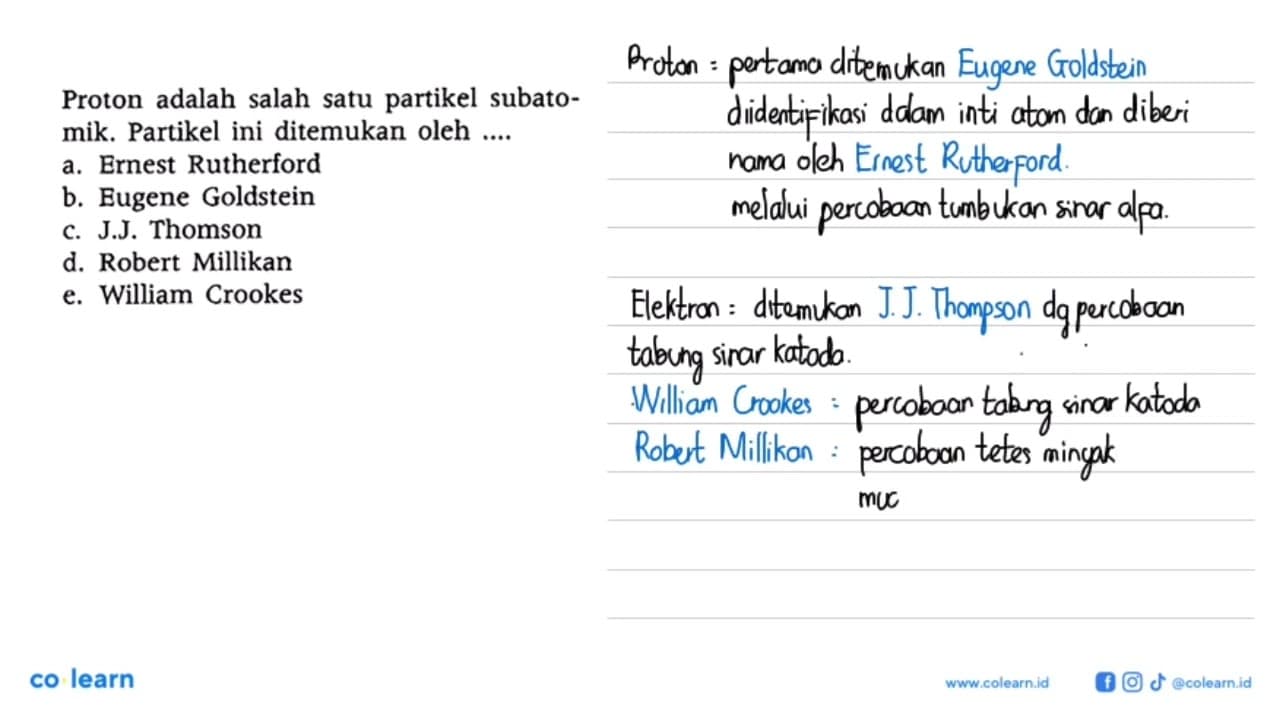 Proton adalah salah satu partikel subato-
mik. Partikel ini ditemukan oleh ....
a. Ernest Rutherford
b. Eugene Goldstein
c. J.J. Thomson
d. Robert Millikan
e. William Crookes
Proton = pertama ditemukan Eugene Goldstein
diidentifikasi dalam inti atom dan diberi
nama oleh Ernest Rutherford.
melalui percobaan tumbukan sinar alfa.
Elektron = ditemukan J.J. Thompson dg percobaan
tabung sinar katoda.
William Crookes : percobaan tabung sinar katoda
Robert Millikan : percobaan tetes minyak
muc
co learn
www.colearn.id
@colearn.id